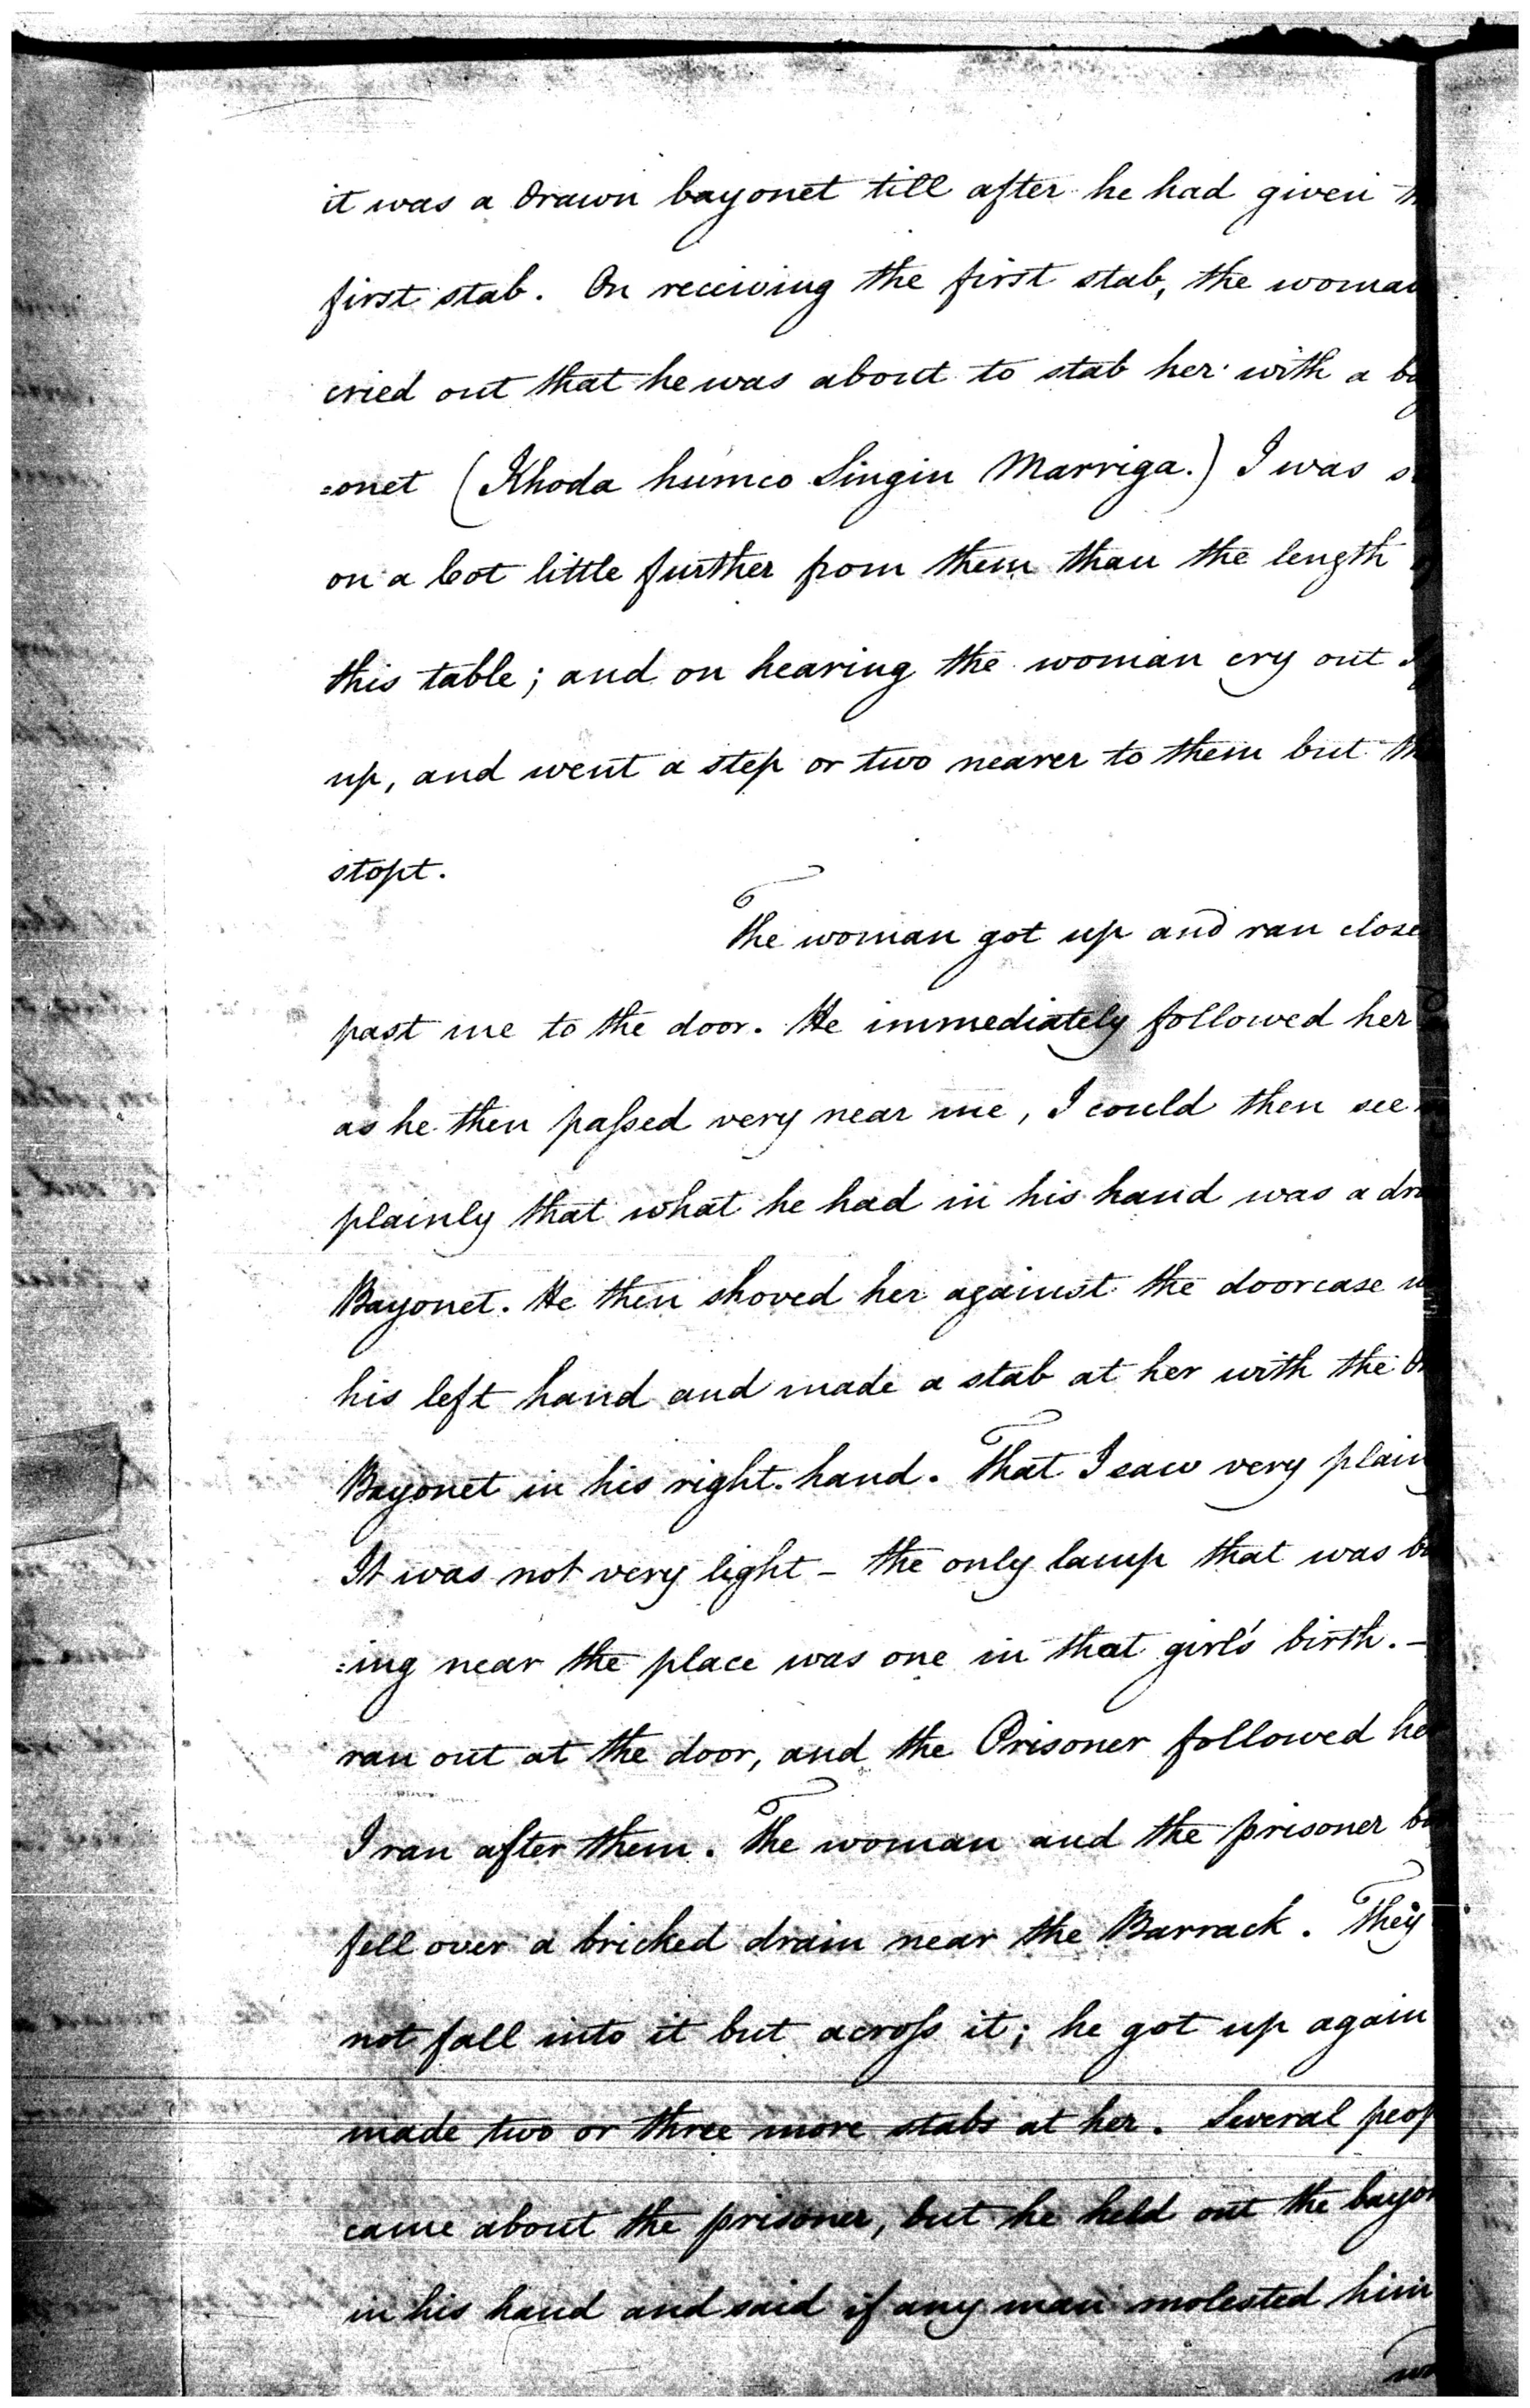 it was a drawn bayonet till after he had given
first stab. On receiving the first stab, the woman
cried out that he was about to stab her with a bay
=onet (Khoda humco Singin Marriga.) I was
on a Cot little further from them than the length
this table; and on hearing the woman cry out I
up, and went a step or two nearer to them but
stopt.
The woman got up and ran close
past me to the door. He immediately followed her
as he then paſsed very near me, I could then see
plainly that what he had in his hand was a
Bayonet. He then shoved her against the doorcase
his left hand and made a stab at her with the
Bayonet in his right hand. That I saw very plain
It was not very light - the only lamp that was
=ing near the place was one in that girl's birth. -
ran out at the door, and the Prisoner followed her
I ran after them. The woman and the prisoner
fell over a bricked drain near the Barrack. They
not fall into it but acroſs it; he got up again
made two or three more stabs at her. Several peop
came about the prisoner, but he held out the bayon
in his hand and said if any man molested him